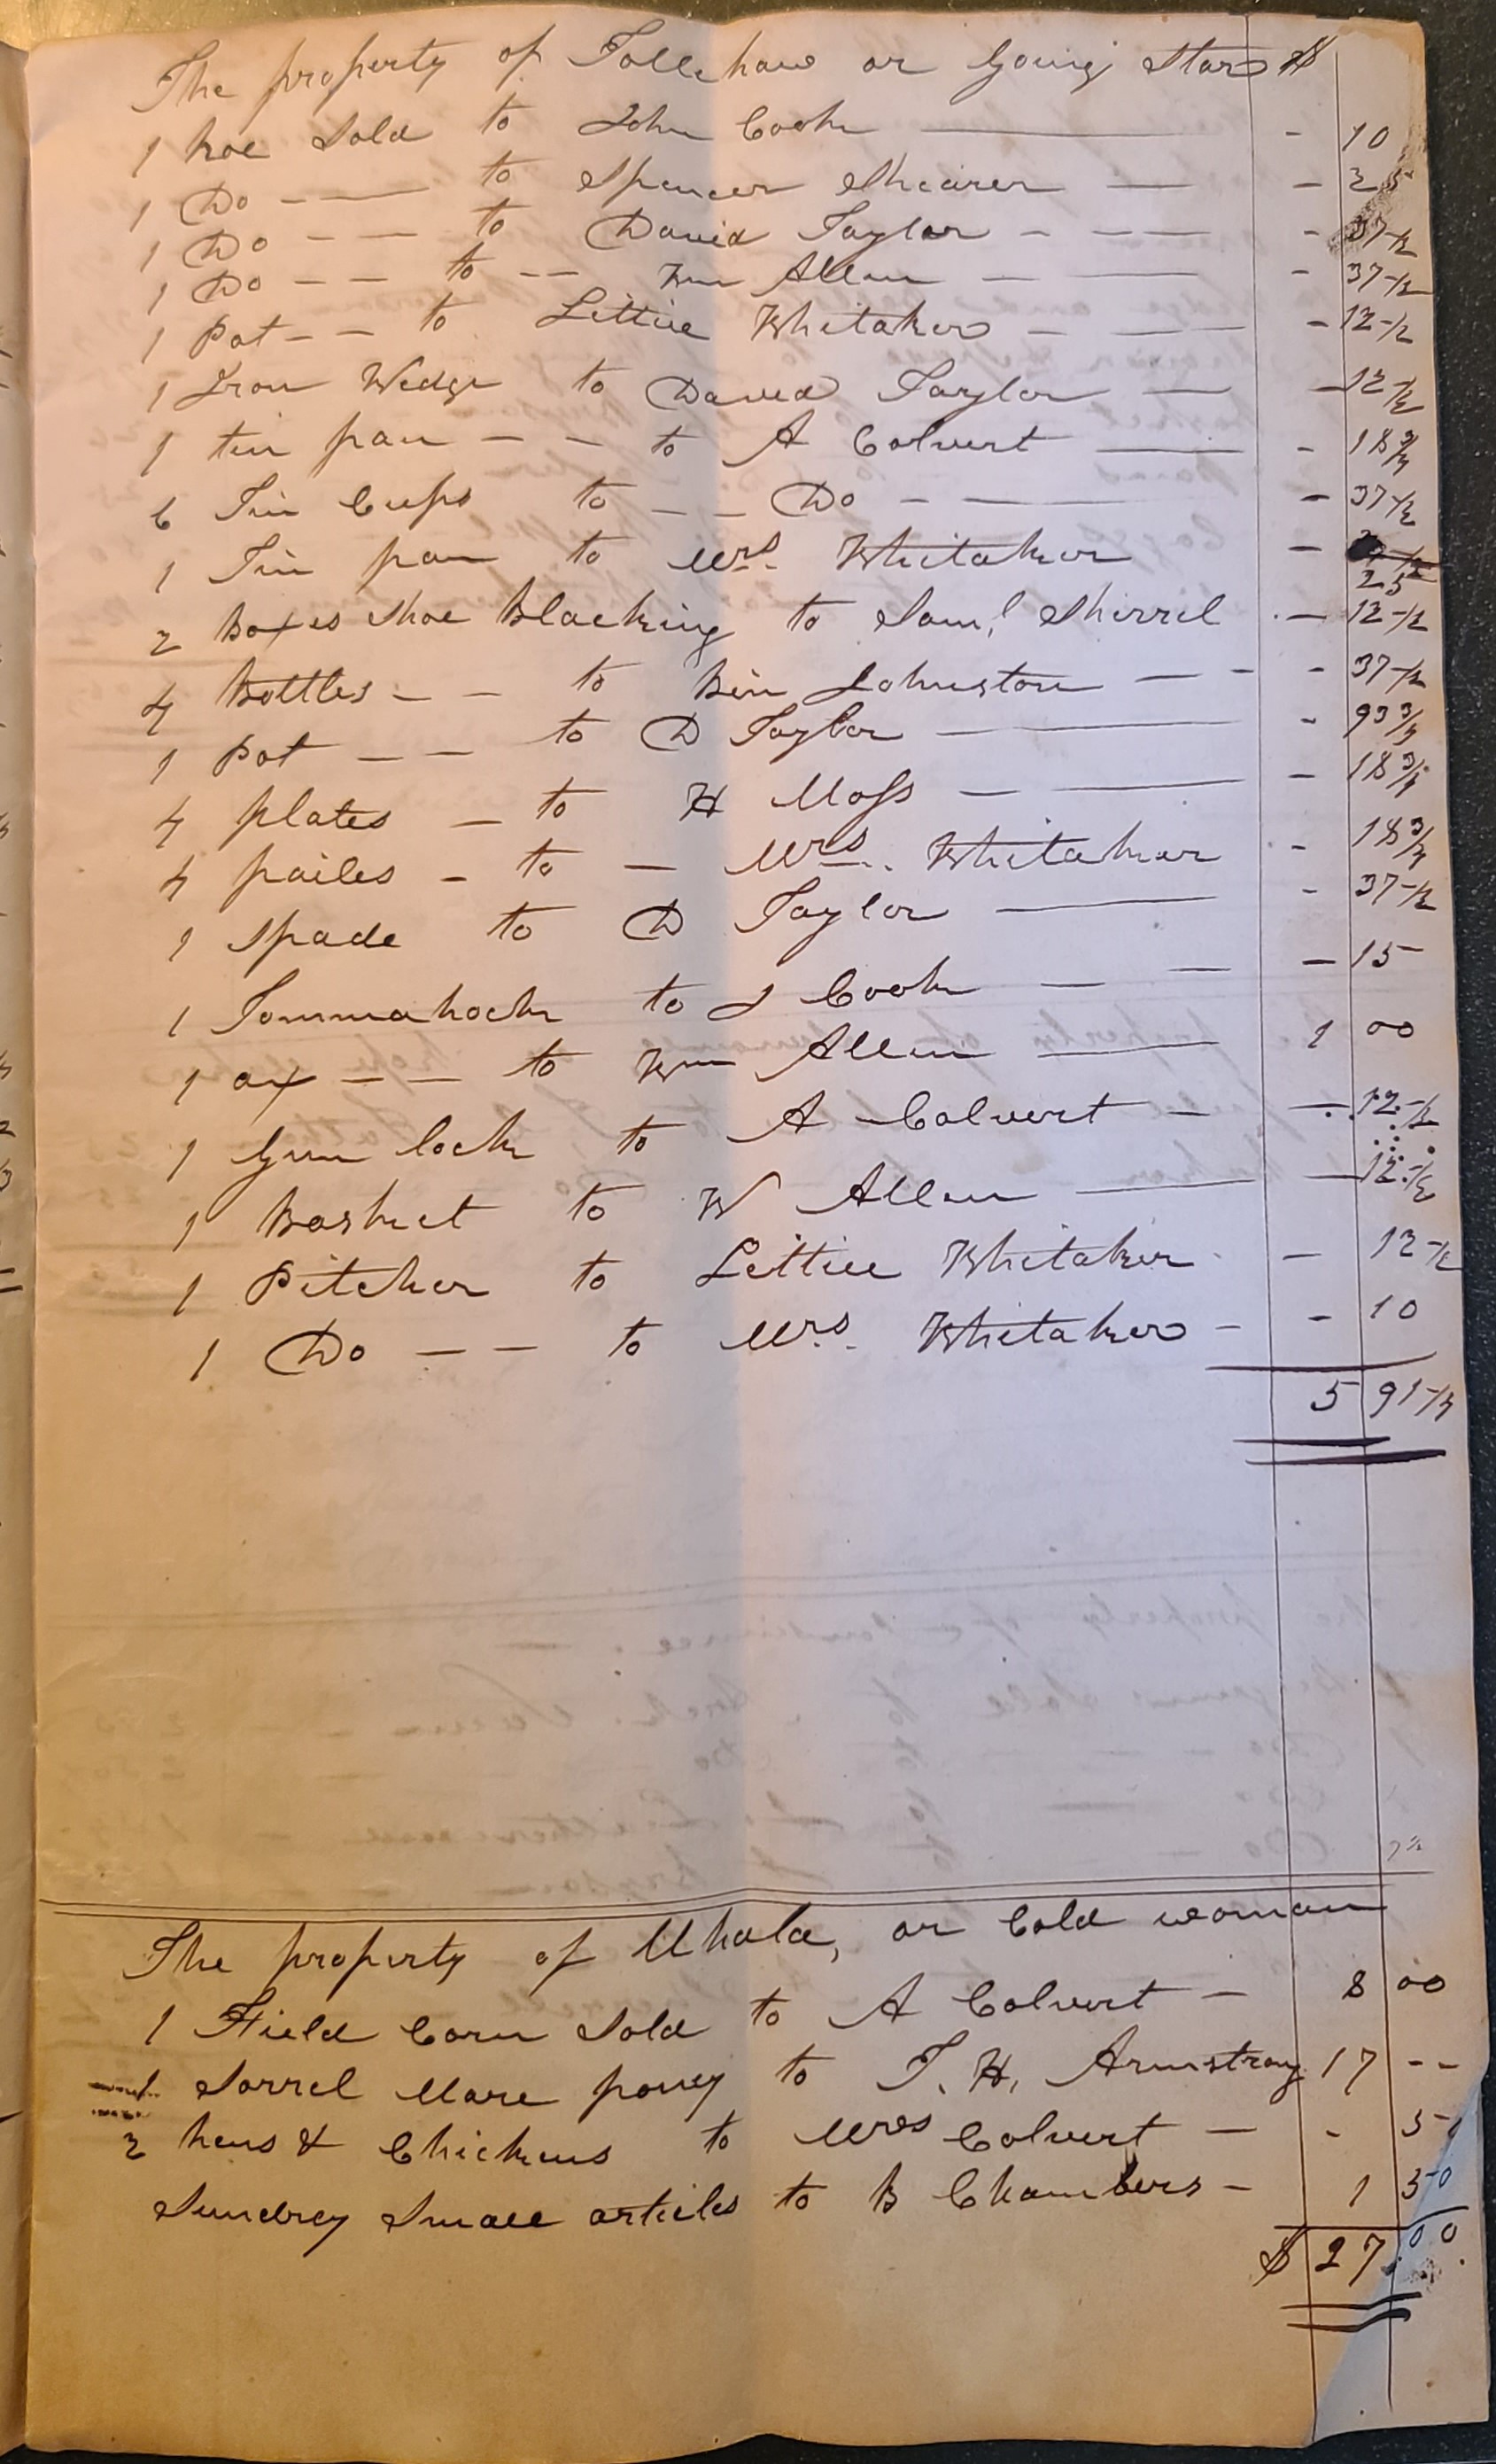 The property of Tallehaw or Going Star $
1 hoe Sold to John Cook — - 10
1 Do - — to Spencer Shearer — - 25
1 Do - — to David Taylor - — - 37-1/2
1 Do - - to -- Wm Allen - — - 37-1/2
1 Pot - - to Lettice Whitaker - — - 12-1/2
1 Iron Wedge to David Taylor — - 12-1/2
1 tin pan - - to A Colvert — - 18 3/4
6 Tin Cups to - - Do - — - 37-1/2
1 Tin pan to Mrs. Whitaker - 25
2 Boxes Shoe Blacking to Saml Sherrel - 12-1/2
4 Bottles - - to Ben Johnston - - - 37-1/2
1 Pot - - to D Taylor — - 93 3/4
4 plates - to H Moss - — - 18 3/4
4 pailes - to - Mrs. Whitaker - 18 3/4
1 Spade to D Taylor — - 37-1/2
1 Tommahock to J Cook — - 15
1 ax - - to Wm Allen — 1 00
1 Gun lock to A Colvert - - 12-1/2
1 Basket to W Allen — - 12-1/2
1 Pitcher to Lettice Whitaker - 12-1/2
1 Do - - to Mrs. Whitaker - - 10
5 91-1/4
The property of Uhala, or Cold woman
1 Field Corn Sold to A Colvert - 8 00
1 Sorrel Mare poney to T. H. Armstrong 17 --
2 hens & Chickens to Mrs Colvert - - 5
Sundrey Small articles to B Chambers - 1 50
$ 27.00